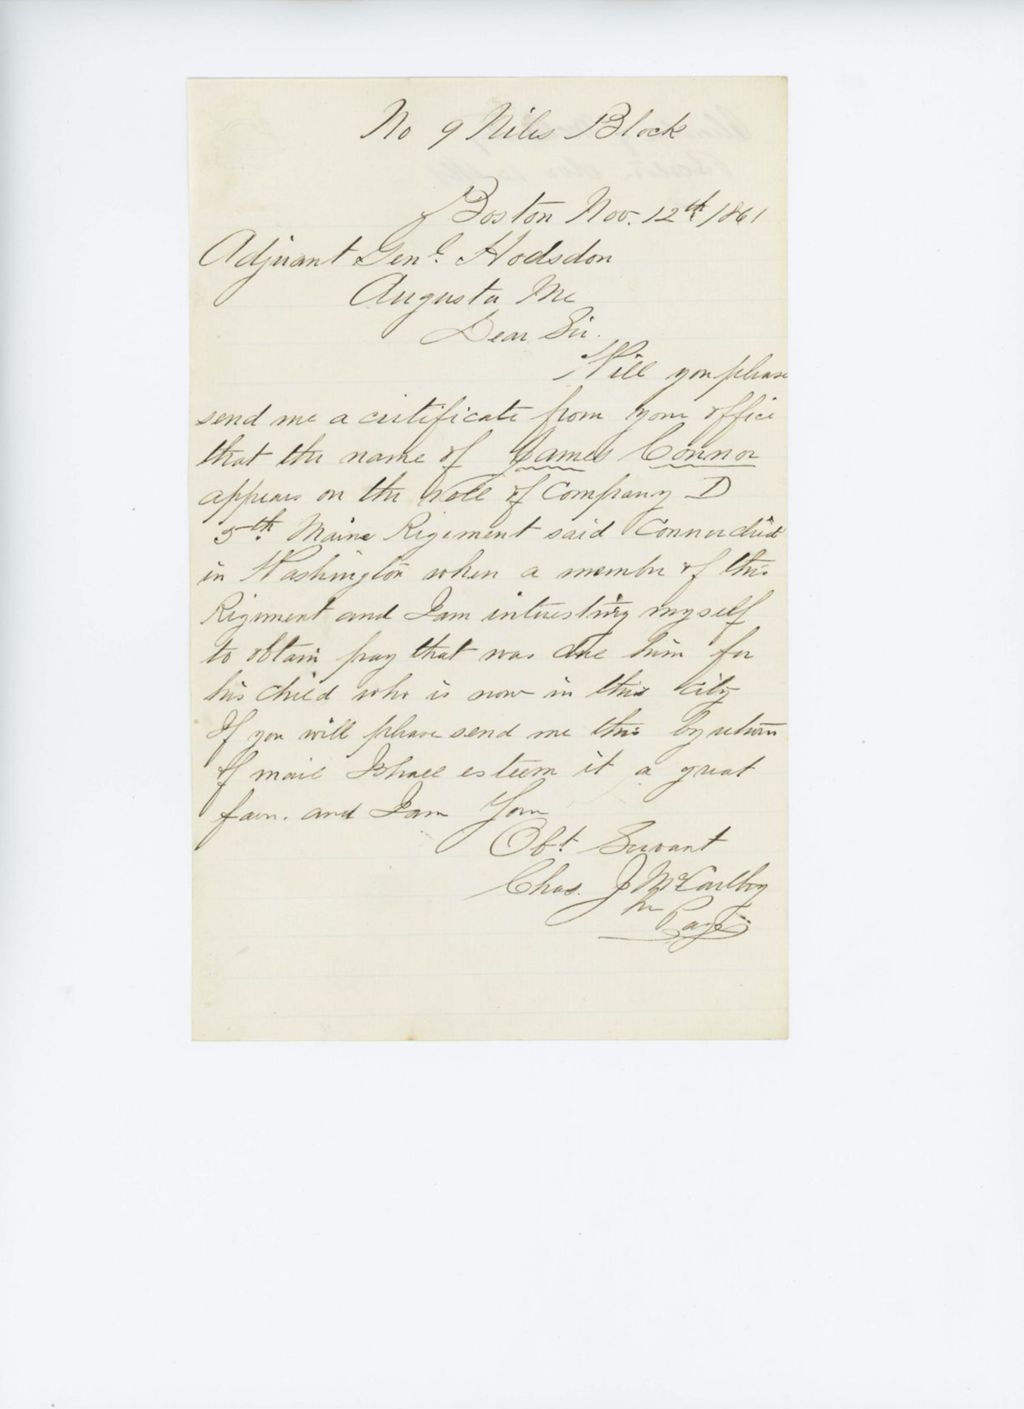 No 9 Niles Block
Boston Nov. 12th 1861
Adjuant Genl. Hodsdon
Augusta Me
Dear Sir.
Will you please
send me a certificate from your office
that the name of James Connor
appears on the Roll of Company D
5th Maine Rigement said Connor died
in Washington when a member of this
Rigement and I am interesting myself
to obtain pay that was due him for
his child who is now in this city
If you will please send me this by return
of mail I shall esteem it a great
favr. and I am Your
Obt Servant
Chas. J